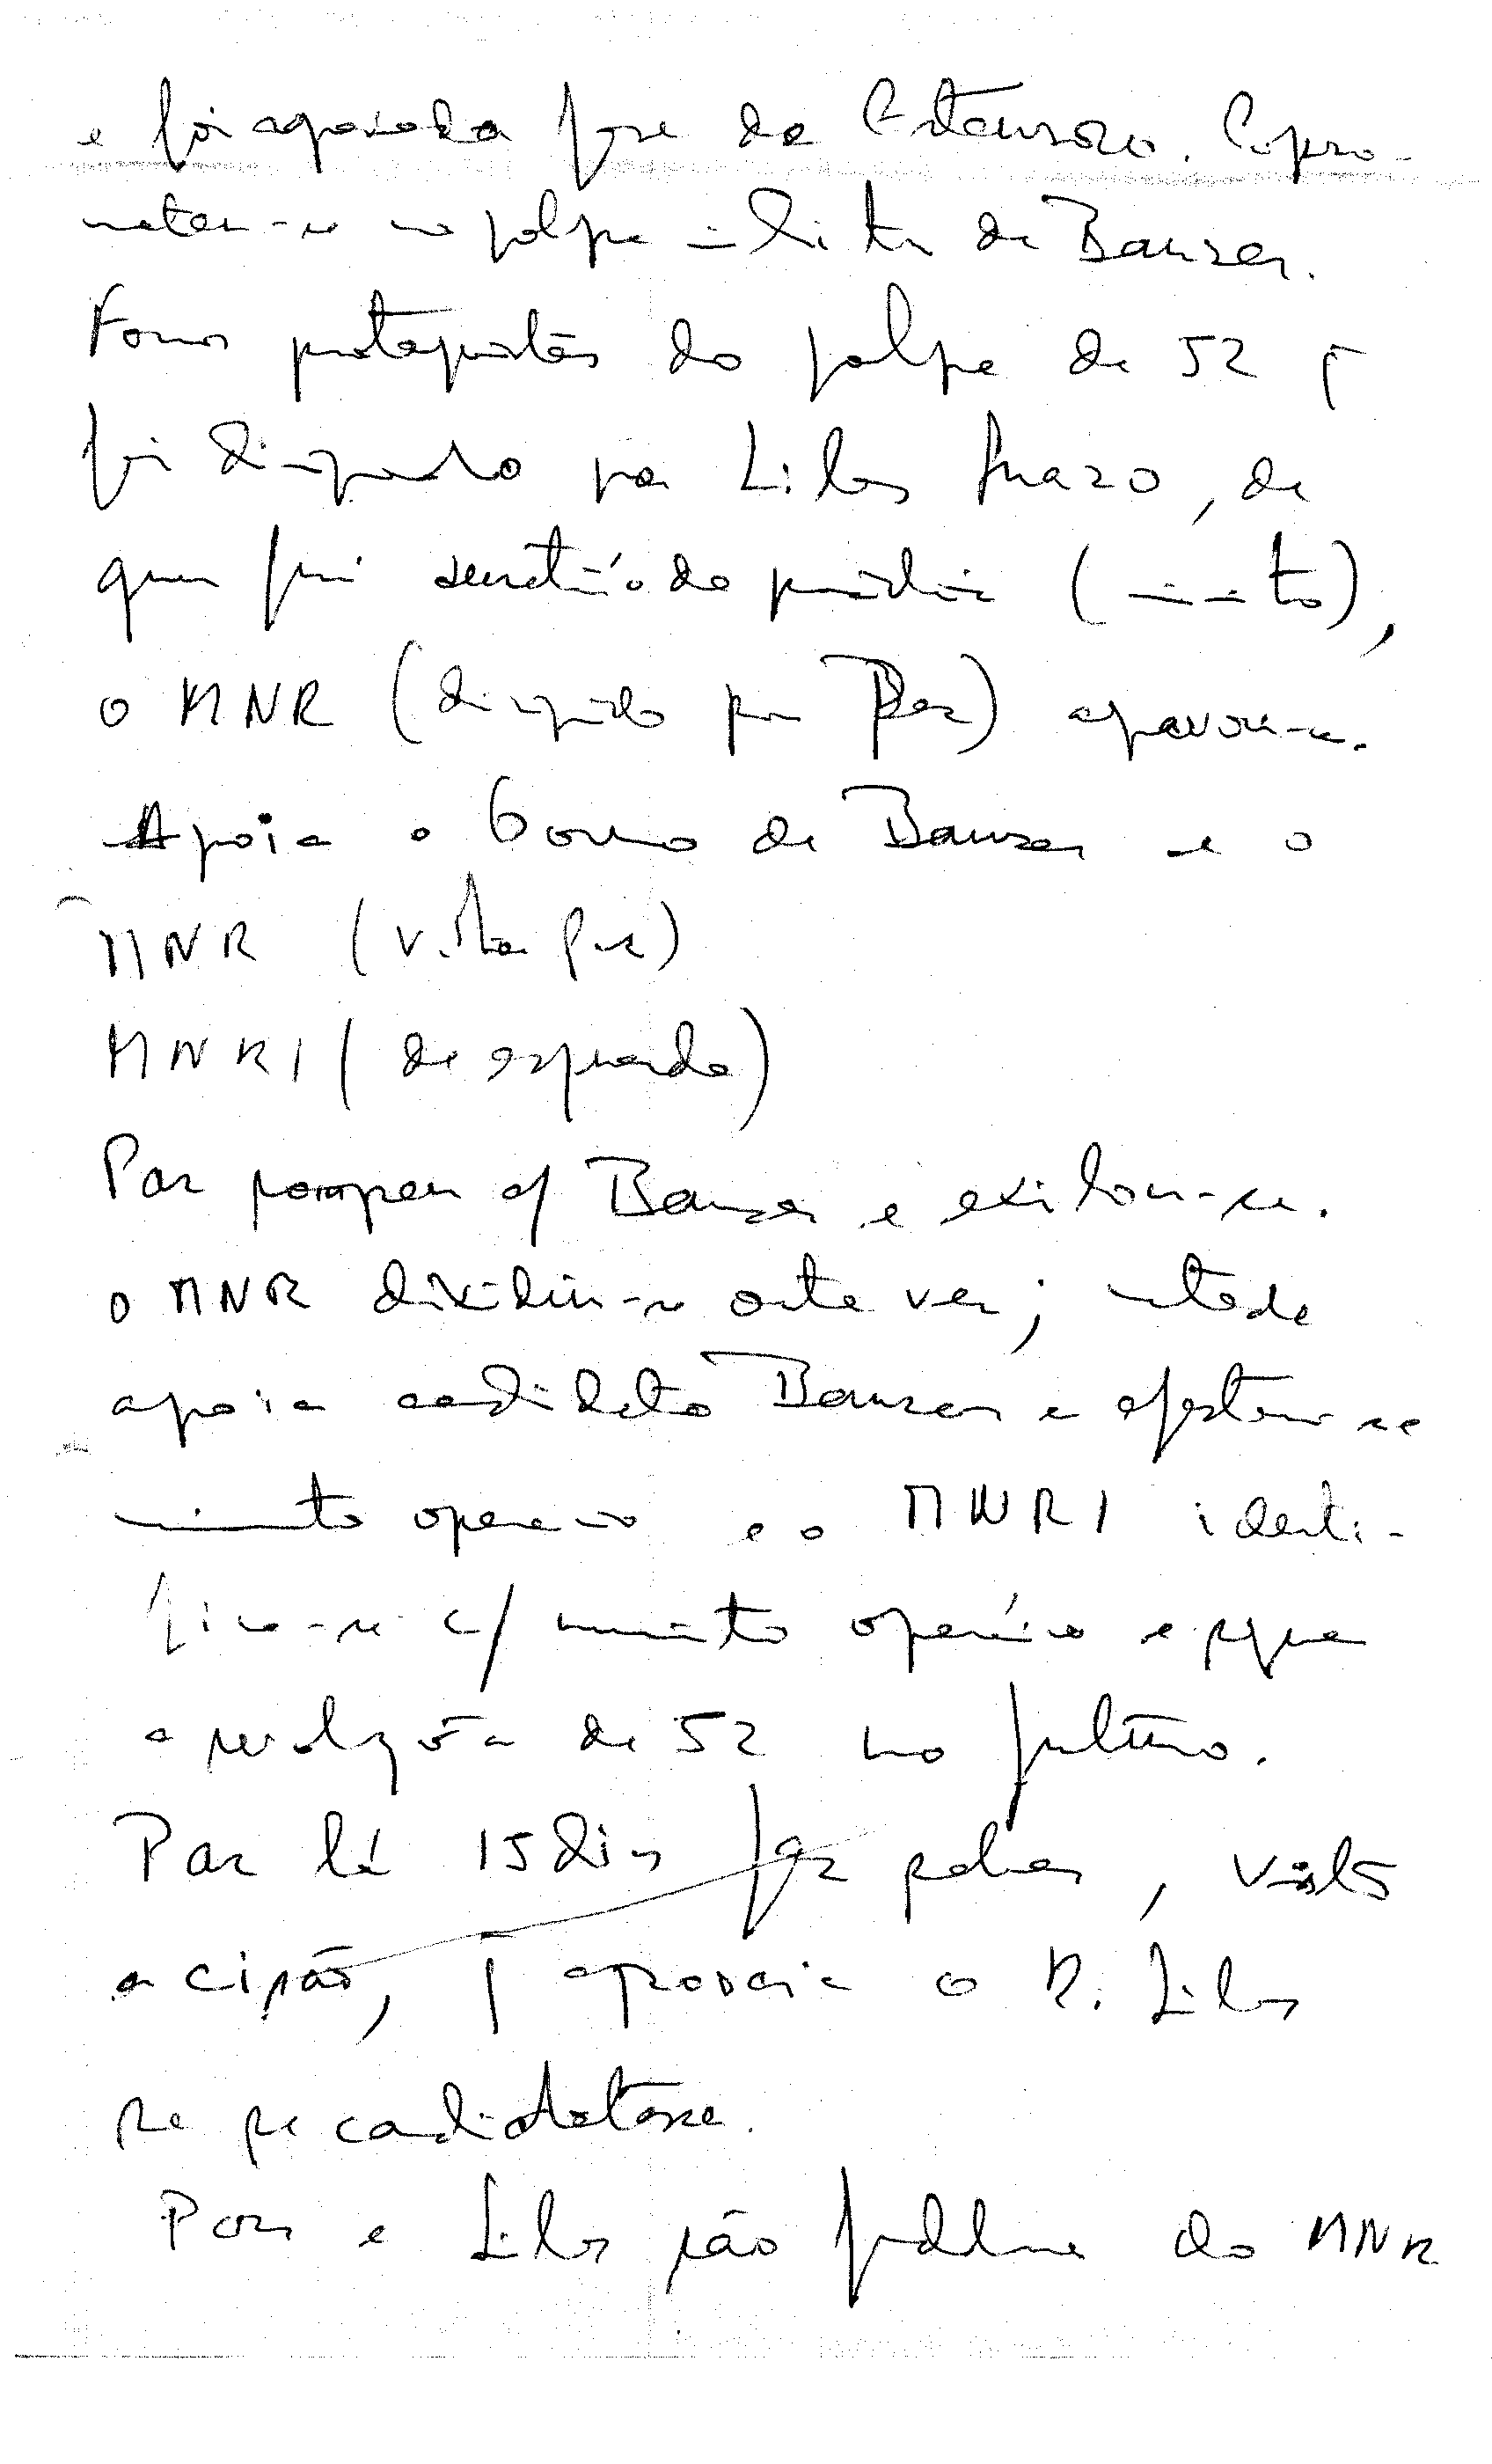 e foi apoiada por de Estensoro. Copro-
meteu-se no golpe militar de Banzer.
Fomos protagonistas do golpe de 52 q
foi dirigido por Siles Suazo, de
quem fui secretário da presidência (ministro),
o MNR (dirigido por Paz) apavorou-se.
Apoia o Governo de Banzer e o
MNR (Vitor Paz)
MNRI (de esquerda)
Paz rompeu c/ Banzer e exilou-se.
o MNR dividiu-se outra vez; metade
apoia candidato Banzer e afastou-se
movimento operario e o MNRI identi-
fica-se c/ movimento operário e segue
a revolução de 52 no futuro.
Paz há 15 dias faz , visto
a cisão, q apoiaria o N. Siles
se se candidatasse.
Paz e Siles são fundadores do MNR